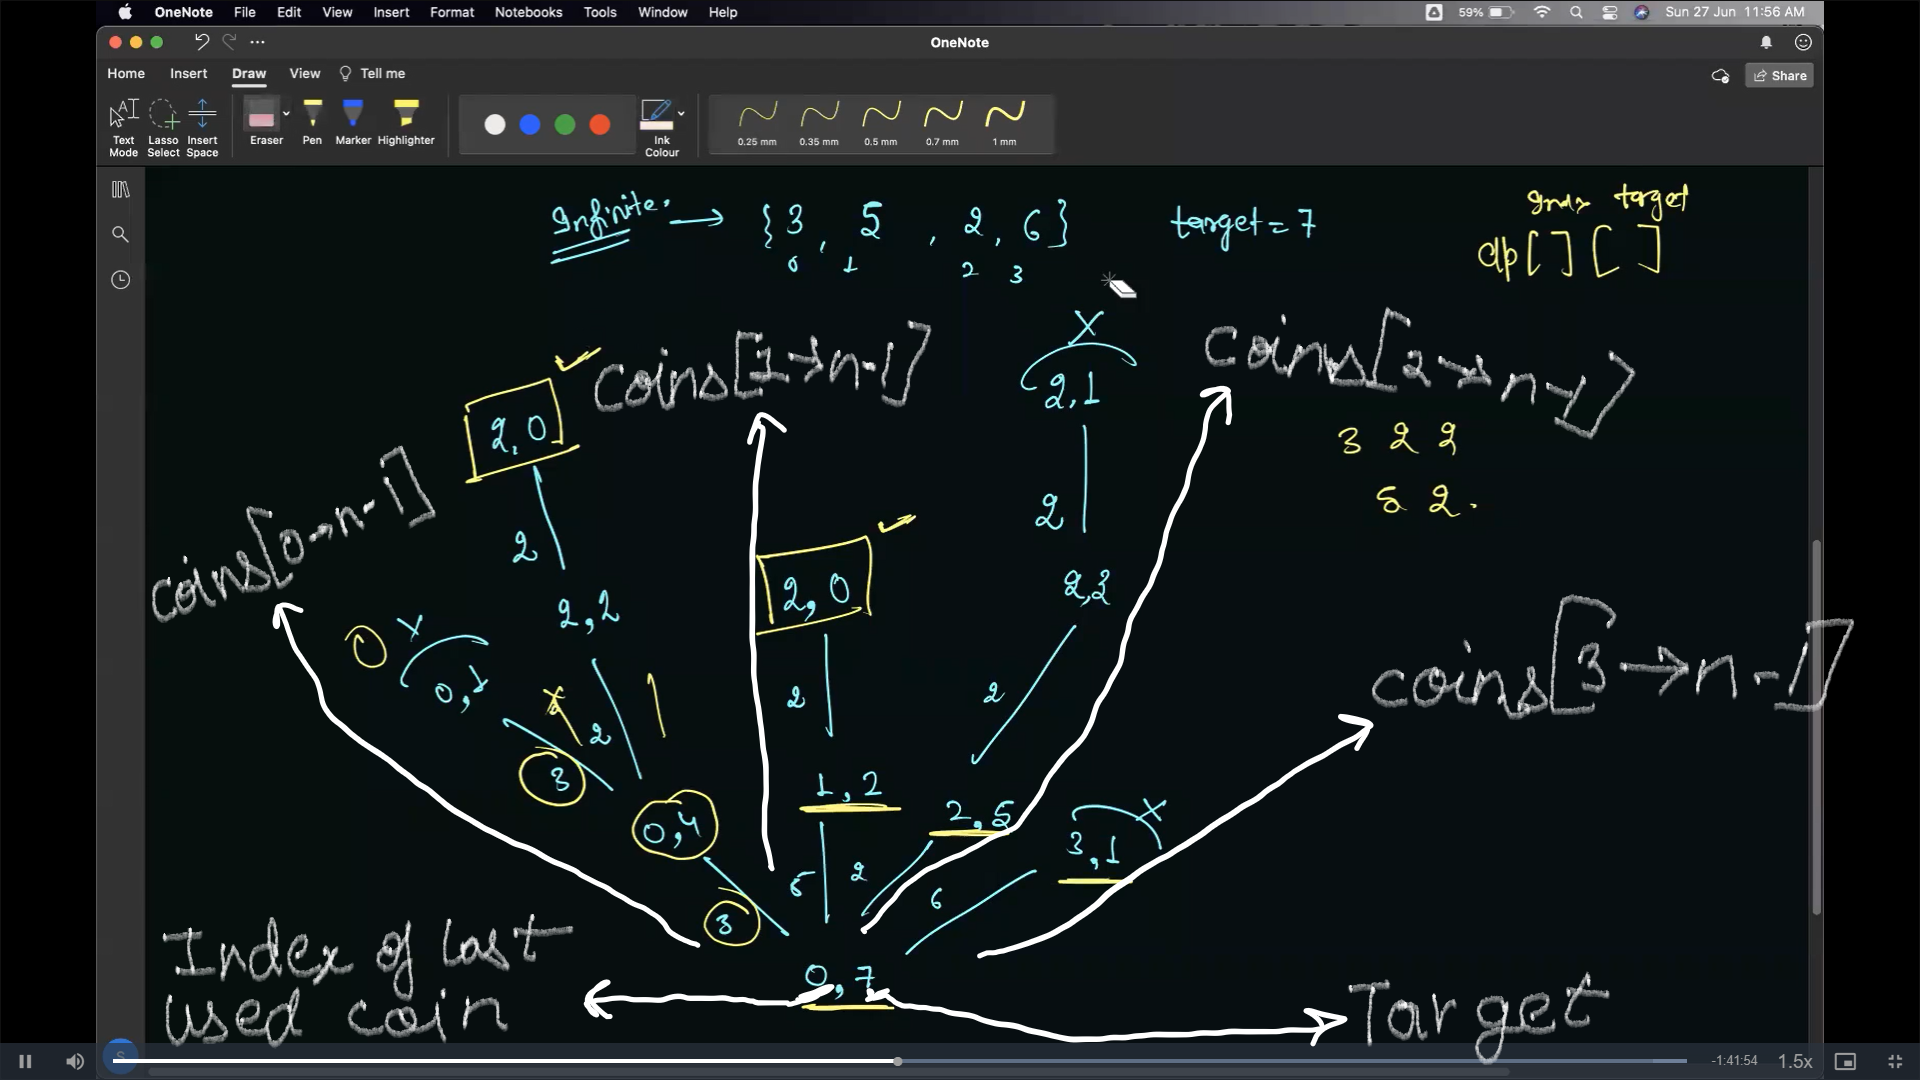 OneNote File Edit View Insert Format Notebooks Tools Window Help 59% Sun 27 Jun 11:56 AM
OneNote
Home Insert Draw View Tell me Share
Text Mode Lasso Select Insert Space Eraser Pen Marker Highlighter Ink Colour 0.25 mm 0.35 mm 0.5 mm 0.7 mm 1 mm
Infinite. → {3, 5, 2, 6} target = 7
0 1 2 3
index target
dp[ ][ ]
coins[1→n-1]
X
coins[2→n-1]
2,0
2,1
3 2 2
coins[0→n-1]
5 2.
2
2
2,0
2,3
2,2
0 X
0,1
coins[3→n-1]
2
2
2
3
1,2
2,5
X
0,4
3,1
5 2 6
3
Index of last
used coin
0,7
Target
S
-1:41:54 1.5x